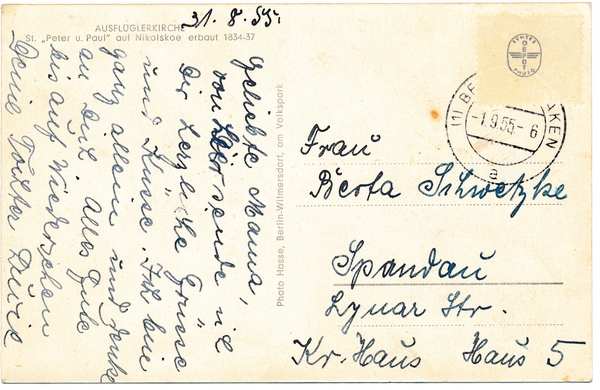 31.8.55.
AUSFLÜGLERKIRCHE
St. „Peter u. Paul" auf Nikolskoe erbaut 1834-37
Geliebte Mama,
von hier sende ich
Dir herzliche Grüsse
und Küsse. Ich bin
ganz allein und denke
an dich. Alles Gute
bis auf Wiedersehen
Deine Tochter
Photo Hasse, Berlin-Wilmersdorf, am Volkspark
BEHEER
DEPOT
PHOTO
(1) BE KEN
-1.9.55-6
a
Frau
Berta Schwetzke
Spandau
Lynar Str.
Kr. Haus Haus 5